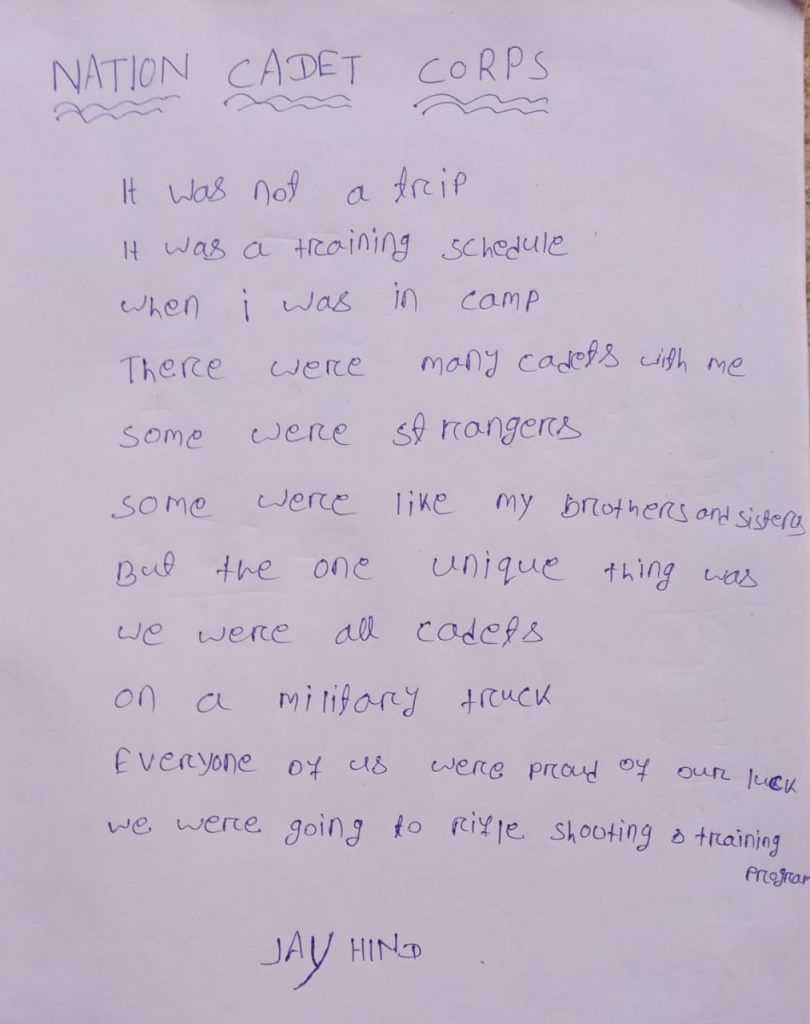 NATION CADET CORPS
It was not a trip
It was a training schedule
when i was in camp
There were many cadets with me
some were strangers
some were like my brothers and sisters
But the one unique thing was
we were all cadets
on a military truck
Everyone of us were proud of our luck
we were going to rifle shooting & training
program
JAY HIND